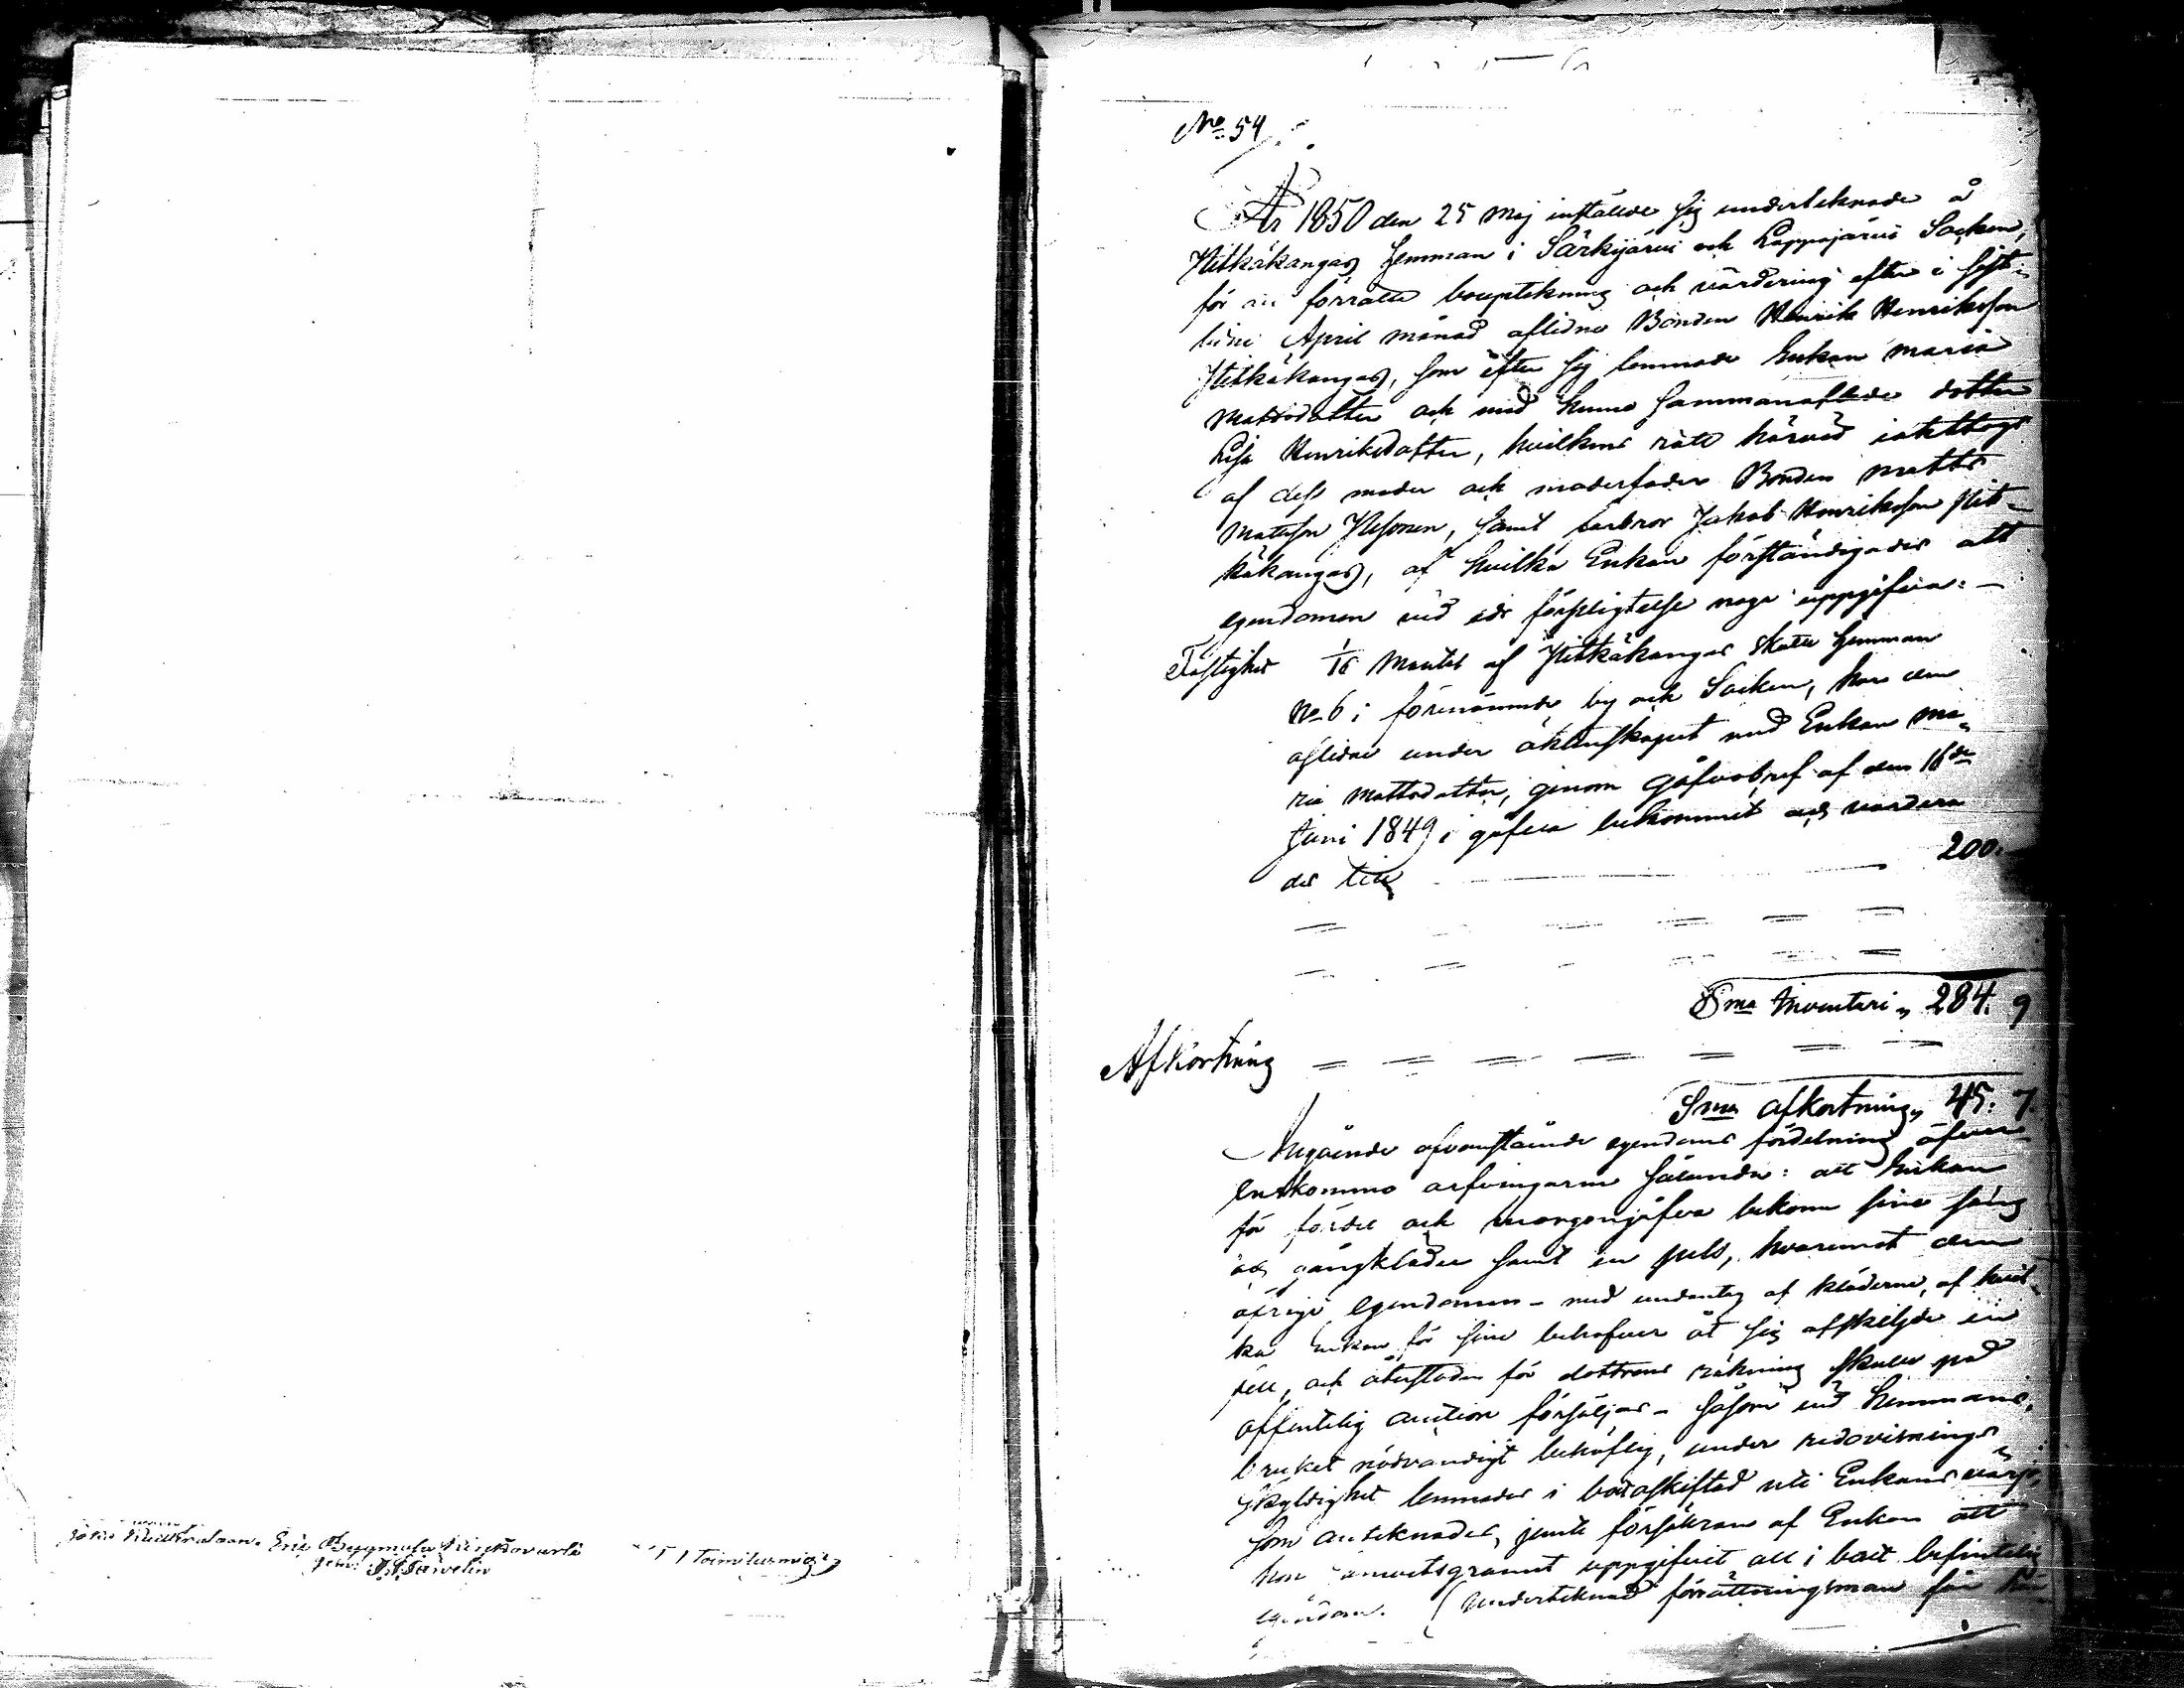 No 54
År 1850 den 25 Maj instälde sig undertecknade å
Pitkäkangas hemman i Särkijärvi och Lappajärvi Sacken,
för att förrätta bouptekning och värdering efter i sist-
lidne April månad aflidne Bonden Henrik Henriksson
Pitkäkangas, som efter sig lemnade Enkan Maria
Mattsdotter och med henne sammanaflade dotter
Lisa Henriksdotter, hvilkens rätt härvid iakttogs
af dess moder och moderfader Bonden Matts
Matsson, samt farbror Jakob Henriksson Pit-
käkangas, af hvilka Enkan förständigades att
egendomen vid eds förpligtelse noga uppgifva:
Fastighet 1/16 Mantal af Pitkäkangas skatte hemman
No 6 i förenämnde by och Socken, har den
aflidne under äktenskapet med Enkan Ma-
ria Mattsdotter, genom gåfvobref af den 16de
Juni 1849 i gåfva bekommit och värdera
des till 200.
Sma Inventarii 284. 9
Afkortning
Sma afkortning 45. 7.
Angående ofvanstående egendoms fördelning öfver-
enskommo arfvingarne sålunda: att Enkan
för fördel och morgongåfva bekom sine säng
och gångkläder samt en pels, hvaremot den
öfriga egendomen - med undantag af kläderne, af hvil-
ka Enkan för sine behofver åt sig afskiljde en
del, och återstoden för dottrens räkning skulle på
offentelig auction försäljas - såsom vid hemmans-
bruket nödvändigt behöflig, under redovisnings
skyldighet lemnades i boet oskiftad uti Enkans värjo,
som antecknades, jemte försäkran af Enkan att
hon samvetsgrannt uppgifvit all i boet befintelig
egendom. Undertecknad förrättningsman får
Eric
gen.